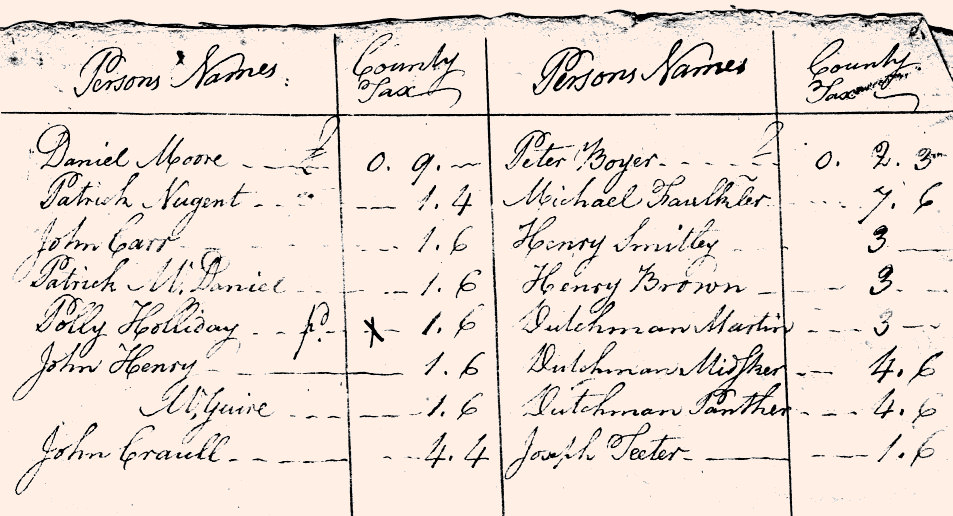 Persons Names. County Tax Persons Names County Tax
Daniel Moore £ 0. 9. — Peter Boyer £ 0. 2. 3
Patrick Nugent — 1. 4 Michael Faulkler 7. 6
John Carr 1. 6 Henry Smitley 3 —
Patrick Mc. Daniel — 1. 6 Henry Brown 3 —
Polly Holliday pd. X 1. 6 Dutchman Martin 3 —
John Henry 1. 6 Dutchman 4. 6
Mc.Guire — 1. 6 Dutchman Panther 4. 6
John Craull 4. 4 Joseph Teeter 1. 6